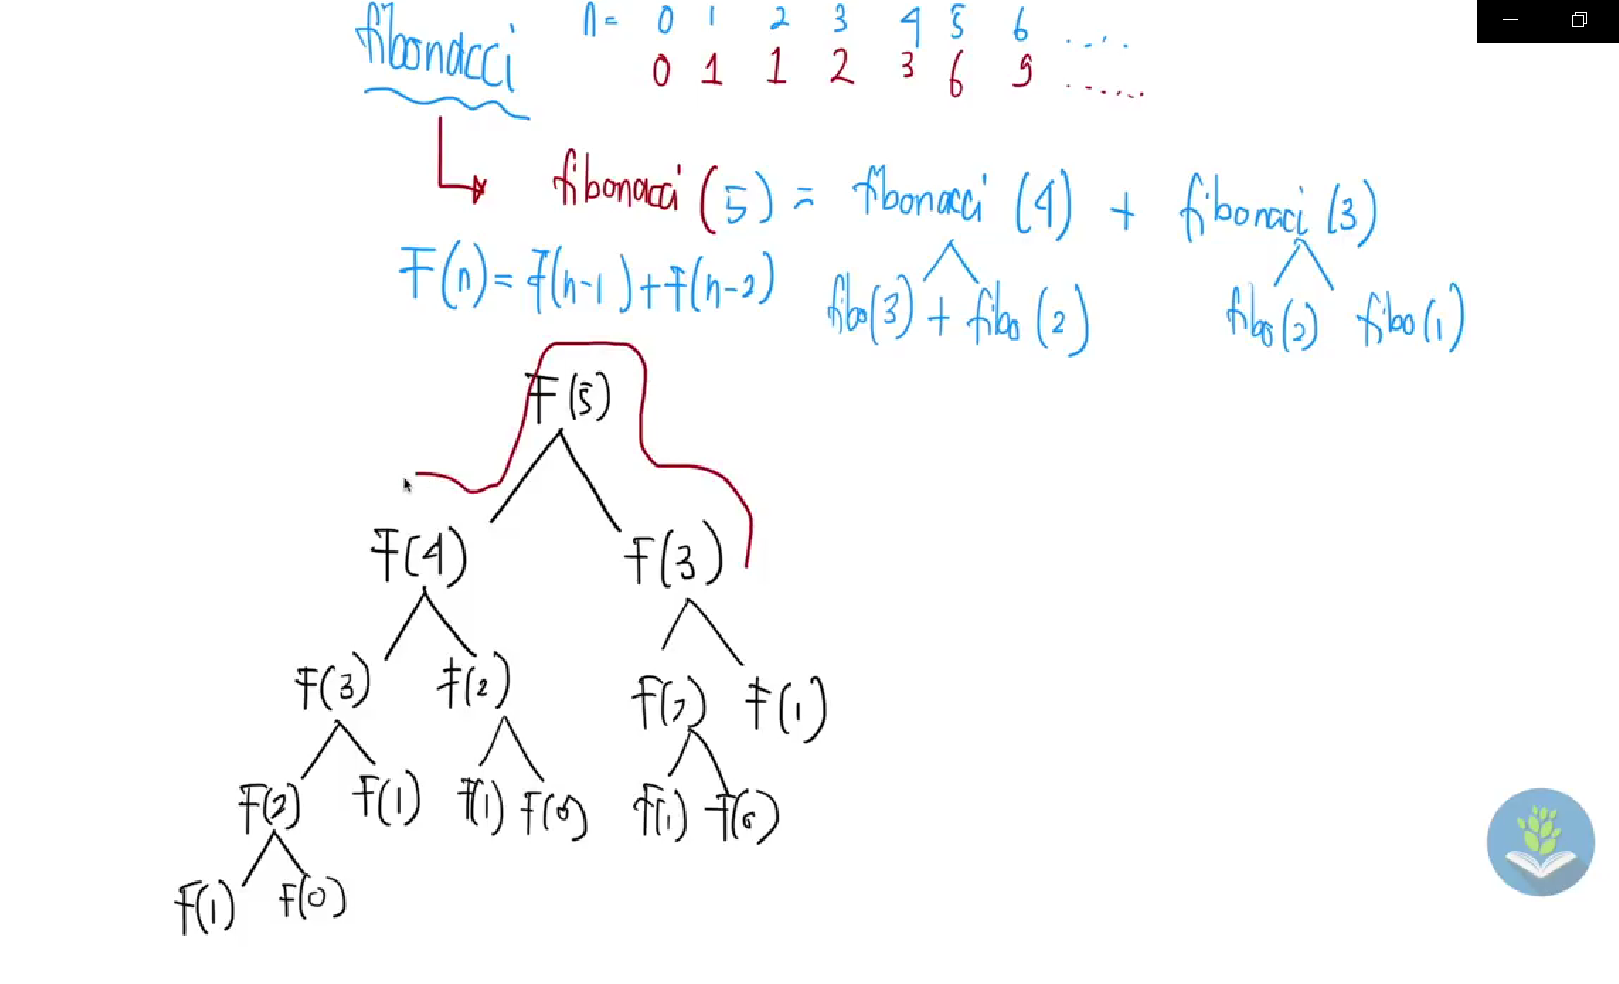 fibonacci n= 0 1 2 3 4 5 6 ....
0 1 1 2 3 6 9 ......
fibonacci (5) = fibonacci (4) + fibonaci (3)
F(n) = F(n-1) + F(n-2) fibo(3) + fibo (2) fibo(2) fibo(1)
F(5)
F(4) F(3)
F(3) F(2) F(2) F(1)
F(2) F(1) F(1) F(0) F(1) F(0)
F(1) F(0)